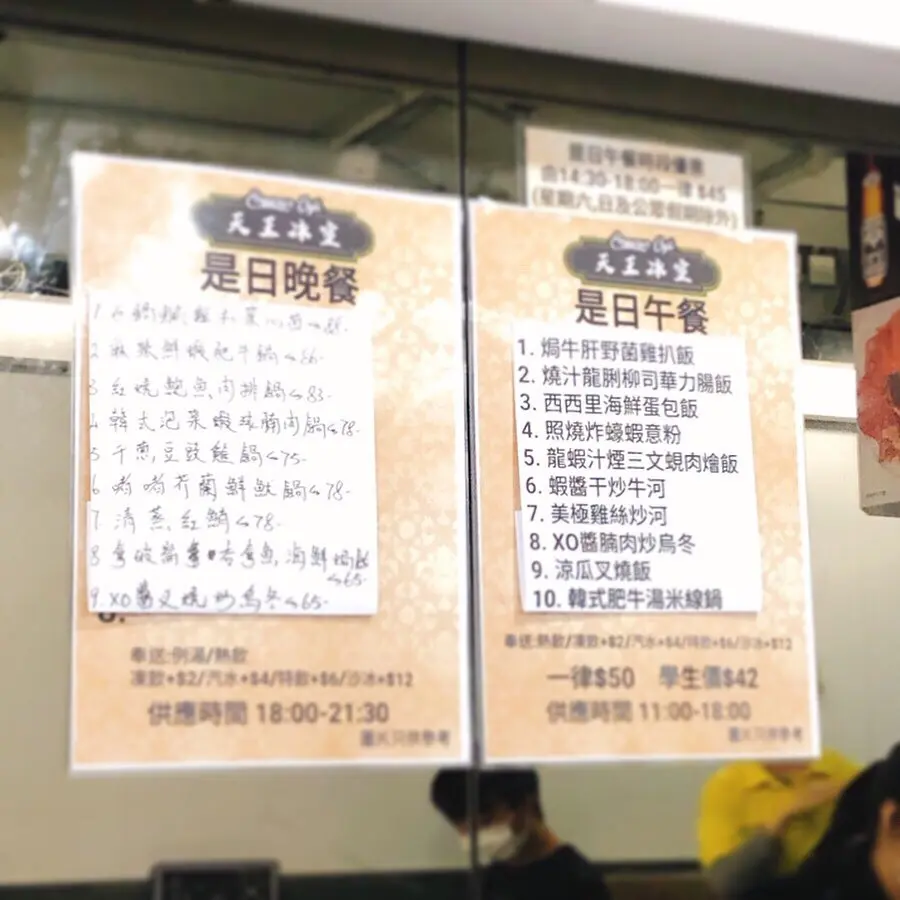 天王冰室
是日晚餐
3 紅燒鮑魚肉排鍋 83-
4 韓式泡菜蝦球腩肉鍋 78-
5 干蔥豆豉雞鍋 75-
6 啫啫芥蘭鮮魷鍋 78-
7. 清蒸紅鯛 78-
65-
9. XO醬叉燒炒烏冬 65-
奉送:例湯/熱飲
凍飲+$2/汽水+$4/特飲+$6/沙冰+$12
供應時間 18:00-21:30
圖片只供參考
是日午餐時段優惠
由14:30-18:00一律 $45
(星期六,日及公眾假期除外)
天王冰室
是日午餐
1. 焗牛肝野菌雞扒飯
2. 燒汁龍脷柳司華力腸飯
3. 西西里海鮮蛋包飯
4. 照燒炸蠔蝦意粉
5. 龍蝦汁煙三文蜆肉燴飯
6. 蝦醬干炒牛河
7. 美極雞絲炒河
8. XO醬腩肉炒烏冬
9. 涼瓜叉燒飯
10. 韓式肥牛湯米線鍋
奉送:熱飲/凍飲+$2/汽水+$4/特飲+$6/沙冰+$12
一律$50 學生價$42
供應時間 11:00-18:00
圖片只供參考